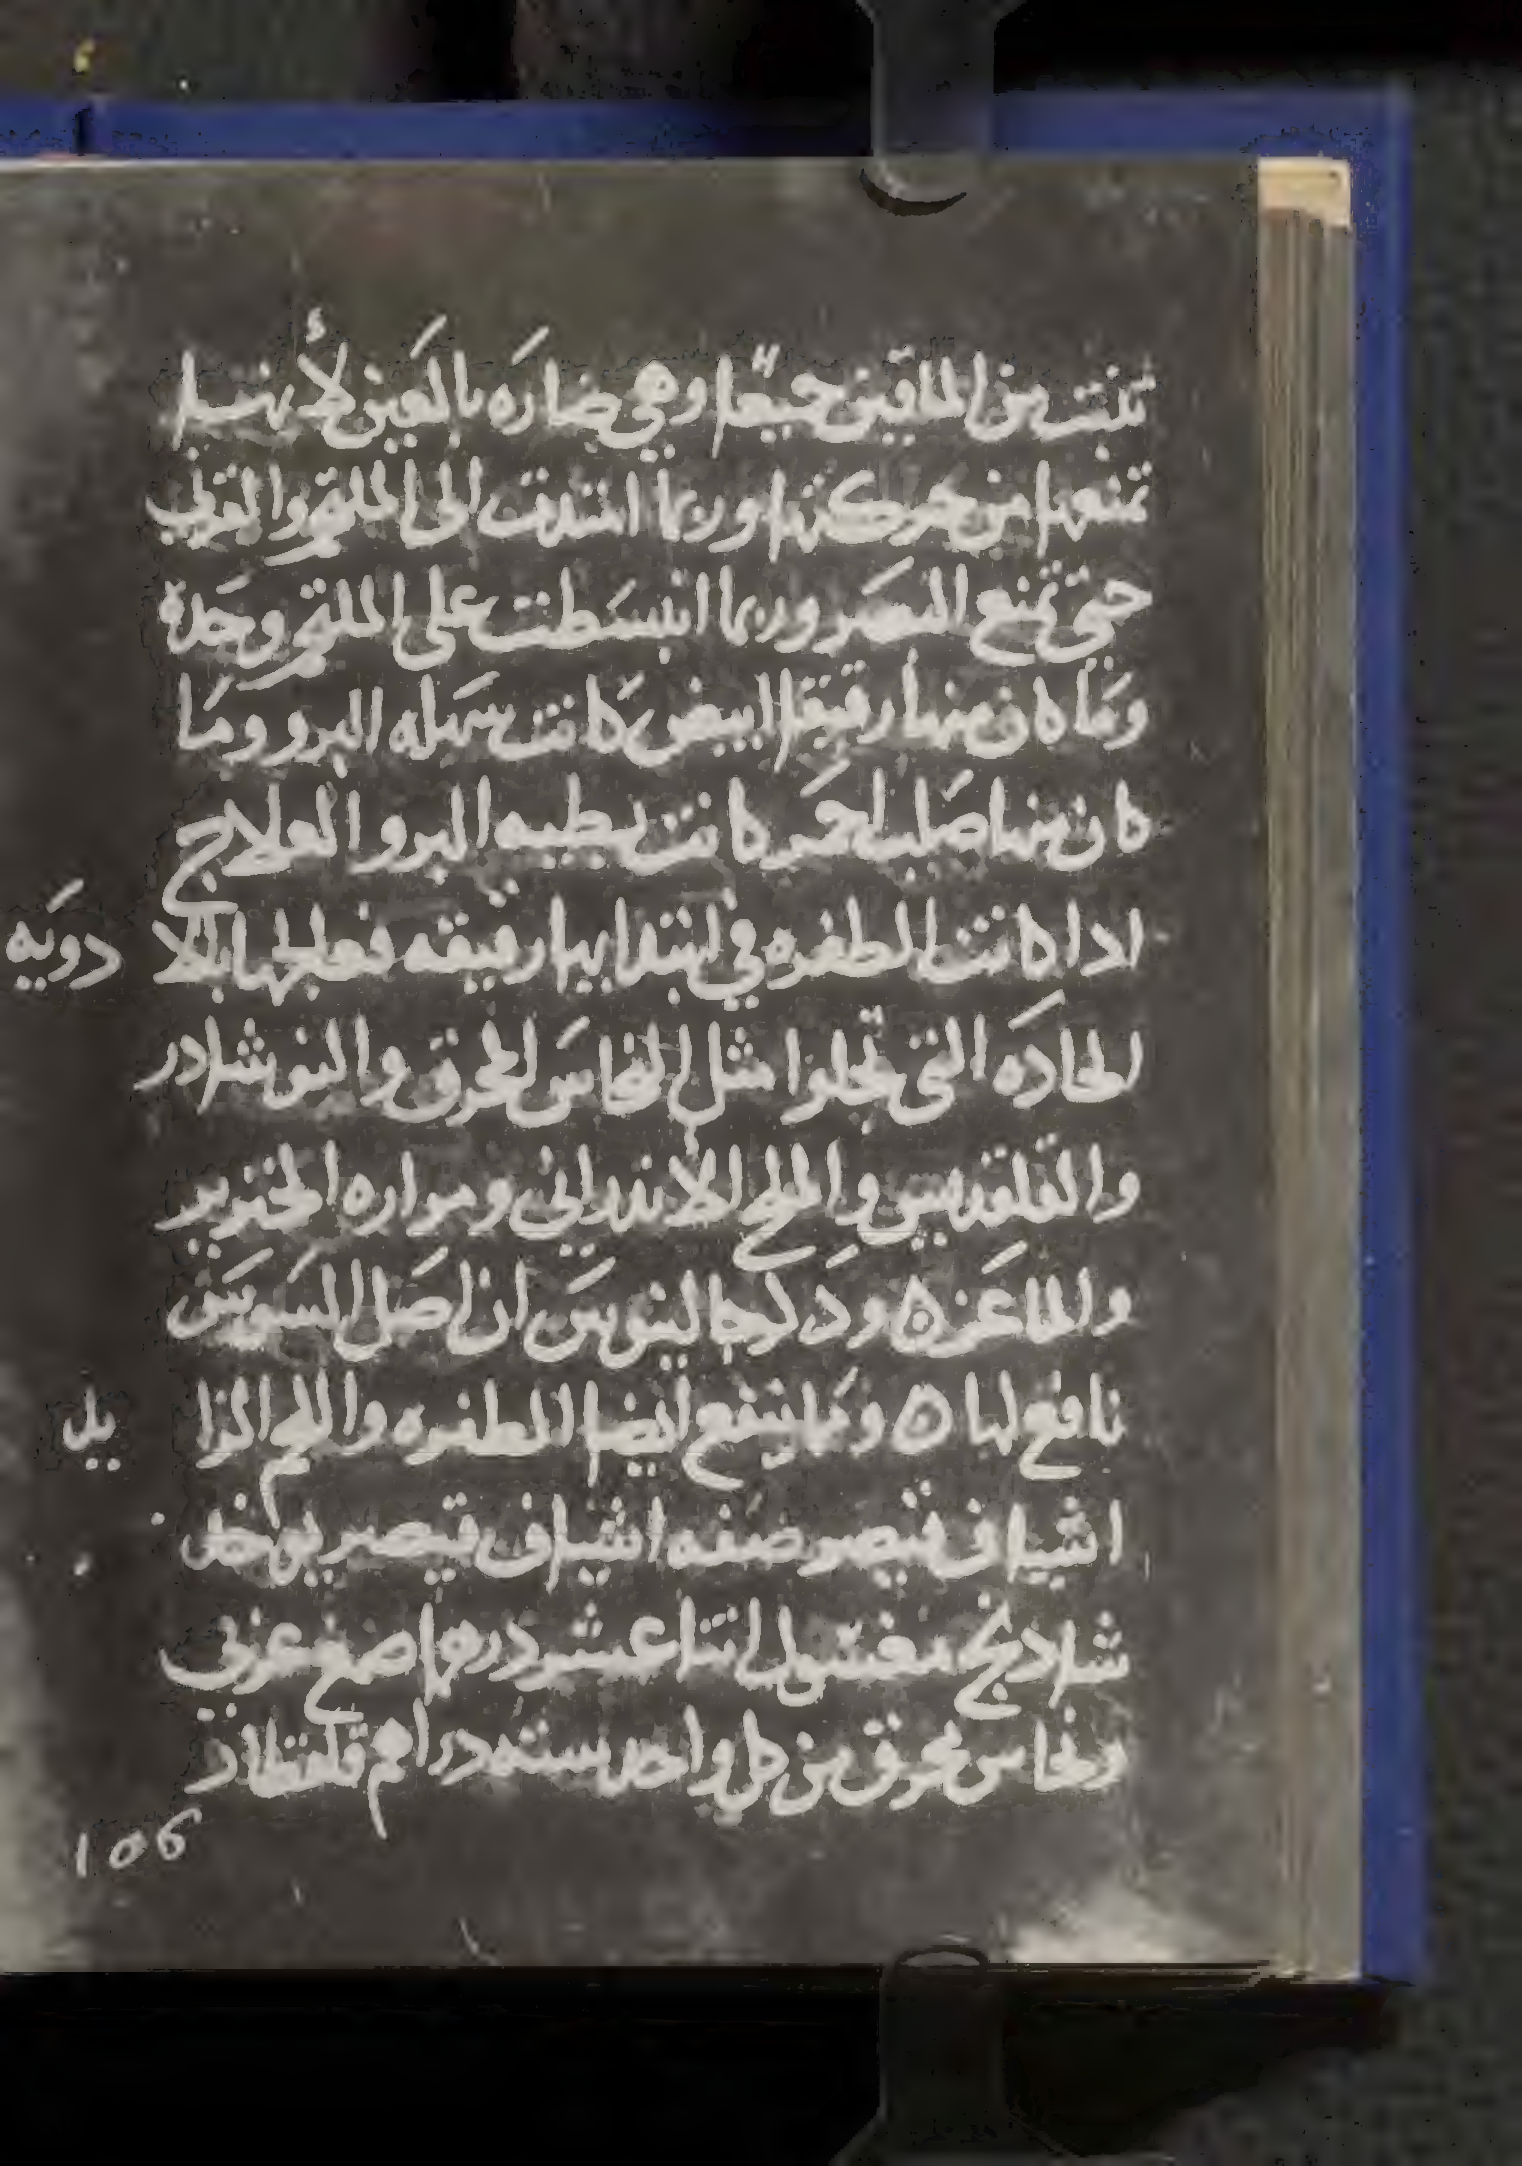 تنبت من الماقين جميعًا وهي ضاره بالعين لأنها
تمنعها من حركتها وربما امتدت الى الملتحم والقرني
حتى تمنع البصر وربما انبسطت على الملتحم وحده
وما كان منها رقيقا ابيض كانت سهله البرو وما
كان منها صلب احمر كانت بطيه البرو العلاج
ادا كانت الطفره في ابتدايها رقيقه فعالجها بالا دويه
الحاده التي تجلوا مثل النحاس المحرق والنوشادر
والقلقديس والملح الاندراني ومراره الخنزير
والماعز ٥ ودكر جالينوس ان اصل السوس
نافع لها ٥ ومما ينفع ايضا الطفره واللحم الزا يل
اشياف قيصر صفه اشياف قيصر يوخد
شاديج مغسول اثنا عشر درهما صمغ عربي
ونحاس محرق من كل واحد سته دراهم قلقطار
106